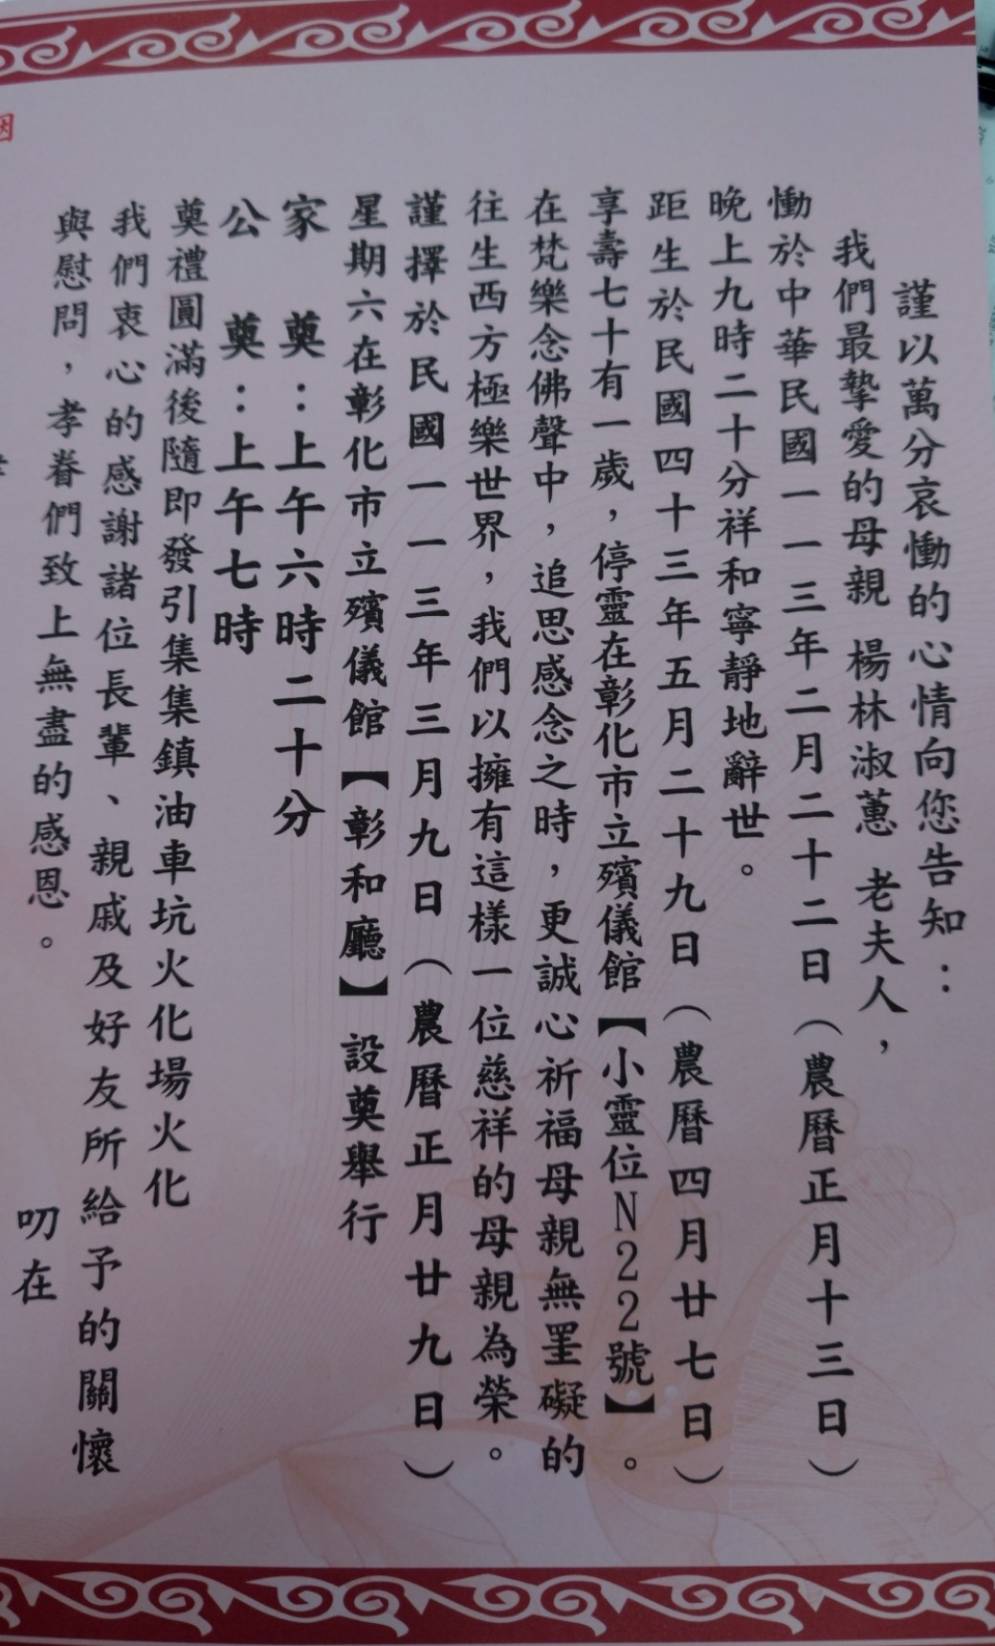 謹以萬分哀慟的心情向您告知：
我們最摯愛的母親 楊林淑蕙 老夫人，
慟於中華民國一一三年二月二十二日（農曆正月十三日）
晚上九時二十分祥和寧靜地辭世。
距生於民國四十三年五月二十九日（農曆四月廿七日）
享壽七十有一歲，停靈在彰化市立殯儀館【小靈位N22號】。
在梵樂念佛聲中，追思感念之時，更誠心祈福母親無罣礙的
往生西方極樂世界，我們以擁有這樣一位慈祥的母親為榮。
謹擇於民國一一三年三月九日（農曆正月廿九日）
星期六在彰化市立殯儀館【彰和廳】設奠舉行
家 奠：上午六時二十分
公 奠：上午七時
奠禮圓滿後隨即發引集集鎮油車坑火化場火化
我們衷心的感謝諸位長輩、親戚及好友所給予的關懷
與慰問，孝眷們致上無盡的感恩。
叨在